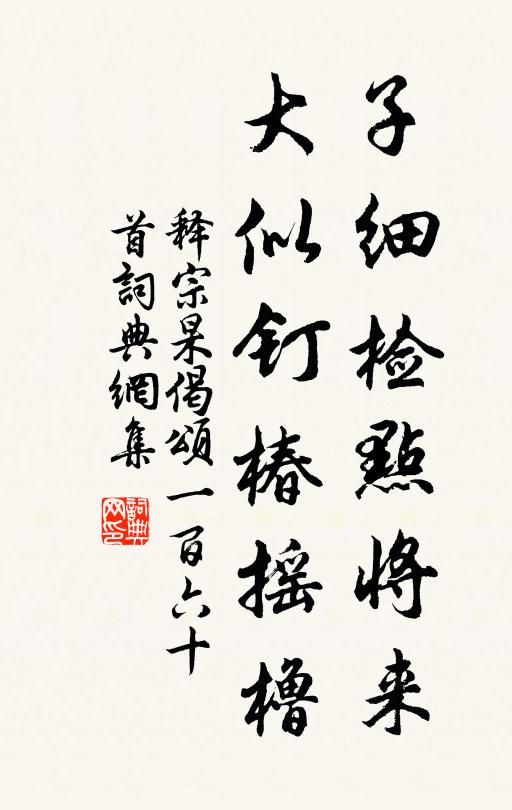 子细检點将来
大似钉椿摇橹
释宗杲偈頌一百六十
首詞典網集
詞典
网印